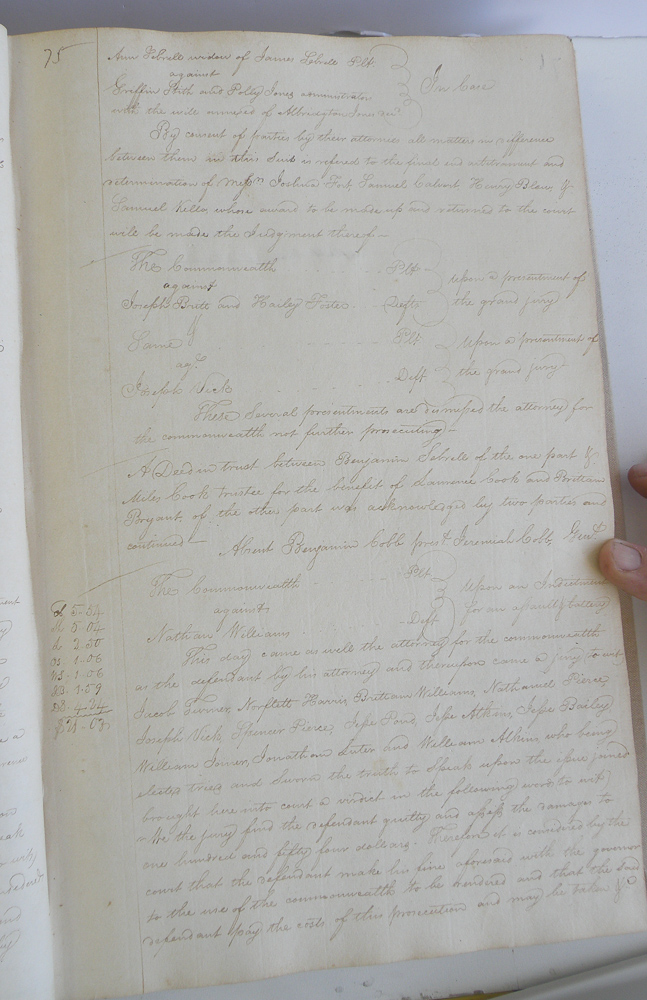 75
Ann Sebrell widow of James Sebrell Plt
against
Griffin Stith and Polly Jones administrator
with the will annexed of Albridgton Jones decd
In Case
By consent of parties by their attornies all matters in difference
between them in this Suit is refered to the final end arbitrament and
determination of Messrs Joshua Fort Samuel Calvert Henry Blow &
Samuel Kello, whose award to be made up and returned to the court
will be made the Judgment thereof
The Commonwealth Plt
against
Joseph Britt and Hailey Foster Defts
upon a presentment of
the grand jury
Same Plt
agt
Joseph Vick Deft
Upon a presentment of
the grand jury
These Several presentments are dismissed the attorney for
the commonwealth not further prosecuting
A Deed in trust between Benjamin Sebrelle of the one part &
Miles Cook trustee for the benefit of Laurence Cook and Brittain
Bryant, of the other part was acknowledged by two parties and
continued
Absent Benjamin Cobb prest Jeremiah Cobb, Gent
The Commonwealth Plt
against
Nathan Williams Deft
Upon an Indictment
for an assault & battery
5.34
5.04
2.50
1.06
1.06
1.59
This day came as well the attorney for the commonwealth
as the defendant by his attorney and thereupon came a jury to wit
Jacob Turner, Norflett Harris, Brittain Williams, Nathaniel Pierce
Joseph Vick, Spencer Pierce, Jesse Pond, Jesse Atkins, Jesse Bailey
William Joiner, Jonathan Luter and William Atkins who being
elected tried and Sworn the truth to Speak upon the issue joined
brought here into court a virdict in the following words to wit
"We the jury find the defendant guilty and assess the damages to
one hundred and fifty four dollars. Thereupon it is considered by the
court that the defendant make his fine aforesaid with the governor
to the use of the commonwealth to be rendered and that the said
defendant pay the costs of this prosecution and may be taken &c